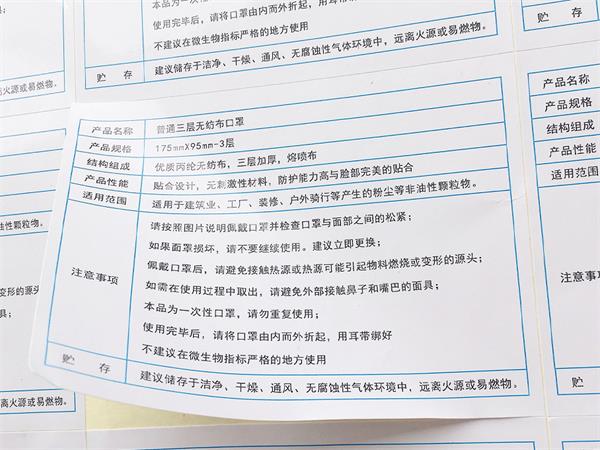 本品为一次性
使用完毕后，请将口罩由内而外折起，用耳带
不建议在微生物指标严格的地方使用
贮 存
建议储存于洁净、干燥、通风、无腐蚀性气体环境中，远离火源或易燃物。
产品名称 普通三层无纺布口罩
产品规格 175mmX95mm-3层
结构组成 优质丙纶无纺布，三层加厚，熔喷布
产品性能 贴合设计，无刺激性材料，防护能力高与脸部完美的贴合
适用范围 适用于建筑业、工厂、装修、户外骑行等产生的粉尘等非油性颗粒物。
注意事项
请按照图片说明佩戴口罩并检查口罩与面部之间的松紧；
如果面罩损坏，请不要继续使用。建议立即更换；
佩戴口罩后，请避免接触热源或热源可能引起物料燃烧或变形的源头；
如需在使用过程中取出，请避免外部接触鼻子和嘴巴的面具；
本品为一次性口罩，请勿重复使用；
使用完毕后，请将口罩由内而外折起，用耳带绑好
不建议在微生物指标严格的地方使用
贮 存
建议储存于洁净、干燥、通风、无腐蚀性气体环境中，远离火源或易燃物。
油性颗粒物。
变形的源头；
离火源或易燃物。
贮
产品名称
产品规格
结构组成
产品性能
适用范围
注意事
贮